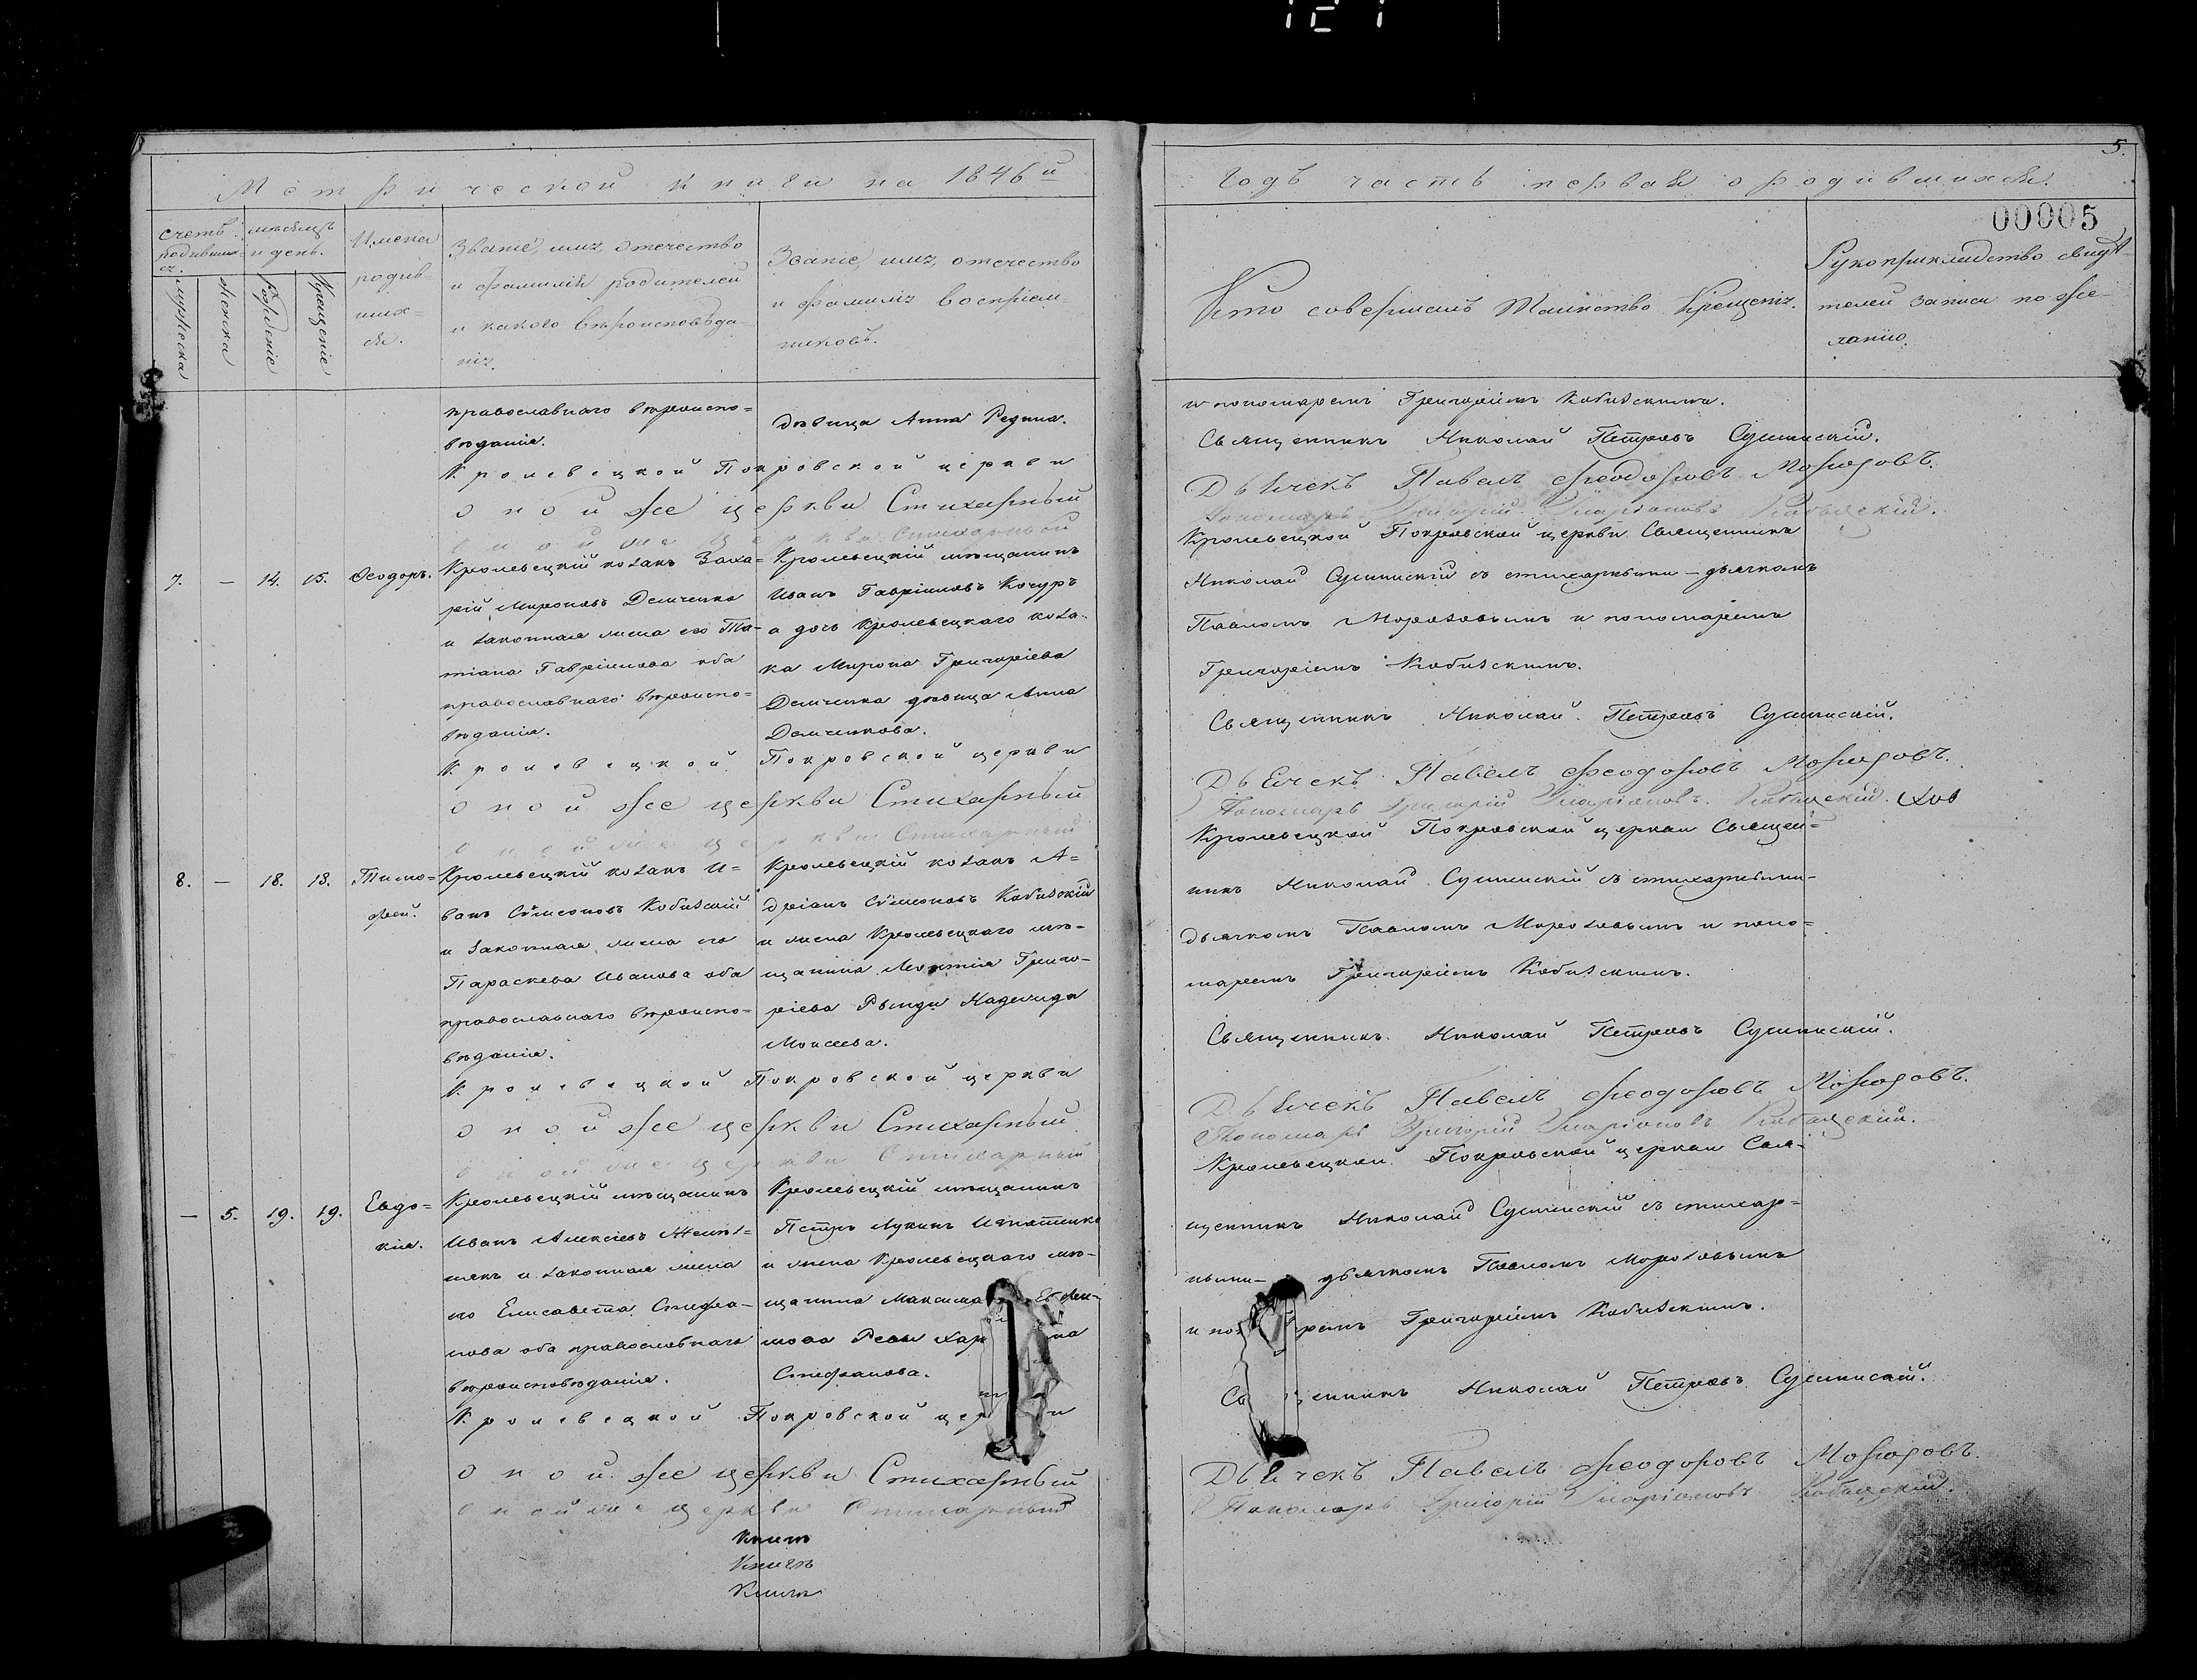 Метрической книги на 1846й
годъ часть первая о родившихся.
5.
00005
счетъ родивших-ся.
мѣсяцъ и день.
мужеска
женска
Рожденіе
Крещеніе
Имена
родив-
шых-
ся.
Званіе, имя, отечество
и фамилія родителей
и какого вѣроисповѣда-
нія.
Званіе, имя, отечество
и фамилія воспріем-
никовъ.
Кто совершалъ Таинство Крещенія.
Рукоприкладство свидѣ-
телей записи по же-
ланію.
православнаго вѣроиспо-
вѣданія.
дѣвица Анна Редина.
и пономаремъ Григоріемъ Кобизскимъ.
Кролевецкой Покровской церкви
Священникъ Николай Петровъ Сушинскій.
оной же церкви Стихарный
Дьячекъ Павелъ Феодоровъ Морозовъ.
оной же церкви Стихарный
Пономарь Григорій Иларіоновъ Кобызскій.
7. — 14. 15. Ѳеодоръ.
Кролевецкій козакъ Заха-
рій Мироновъ Демченко
и законная жена его Та-
тіана Гавріилова оба
православнаго вѣроиспо-
вѣданія.
Кролевецкій мѣщанинъ
Иванъ Гавріиловъ Кочуръ
а дочь Кролевецкаго коза-
ка Мирона Григоріева
Демченка дѣвица Анна
Демченкова.
Кролевецкой Покровской церкви Священникъ
Николай Сушинскій съ стихарными – дьячкомъ
Павломъ Морозовымъ и пономаремъ
Григоріемъ Кобизскимъ.
Кролевецкой Покровской церкви
Священникъ Николай Петровъ Сушинскій.
оной же церкви Стихарный
Дьячекъ Павелъ Феодоровъ Морозовъ.
оной же церкви Стихарный
Пономарь Григорій Иларіоновъ Кобызскій.
8. — 18. 18. Тимо-
фей.
Кролевецкій козакъ И-
ванъ Сѵмеоновъ Кобизскій
и законная жена его
Параскева Иванова оба
православнаго вѣроиспо-
вѣданія.
Кролевецкій козакъ А-
дріанъ Сѵмеоновъ Кобизскій
и жена Кролевецкаго мѣ-
щанина Леонтія Григо-
ріева Рынди Надежда
Моисеева.
Кролевецкой Покровской церкви Священ-
никъ Николай Сушинскій съ стихарными –
дьячкомъ Павломъ Морозовымъ и поно-
маремъ Григоріемъ Кобизскимъ.
Кролевецкой Покровской церкви
Священникъ Николай Петровъ Сушинскій.
оной же церкви Стихарный
Дьячекъ Павелъ Феодоровъ Морозовъ.
оной же церкви Стихарный
Пономарь Григорій Иларіоновъ Кобызскій.
— 5. 19. 19. Евдо-
кія.
Кролевецкій мѣщанинъ
Иванъ Алексѣевъ
и законная жена
его Елисавета Стефа-
нова оба православнаго
вѣроисповѣданія.
Кролевецкій мѣщанинъ
Петръ Лукинъ Игнатенко
и жена Кролевецкаго мѣ-
щанина Максима
Стефанова.
Кролевецкой Покровской церкви Свя-
щенникъ Николай Сушинскій съ стихар-
ными – дьячкомъ Павломъ Морозовымъ
и Григоріемъ Кобизскимъ.
Кролевецкой Покровской
Николай Петровъ Сушинскій.
оной же церкви Стихарный
Дьячекъ Павелъ Феодоровъ Морозовъ.
оной же церкви Стихарный
Пономарь Григорій Иларіоновъ Кобызскій.